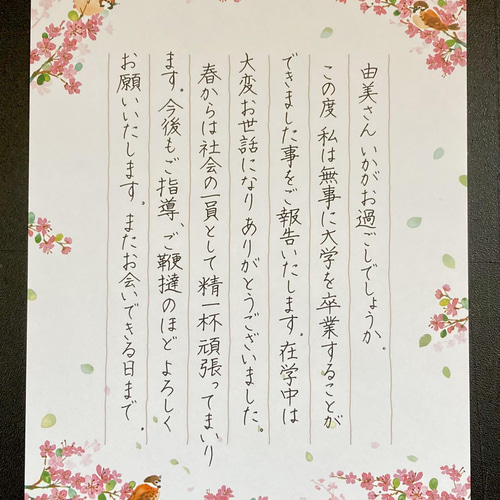 由美さん いかがお過ごしでしょうか。
この度 私は無事に大学を卒業することが
できました事をご報告いたします。在学中は
大変お世話になり ありがとうございました。
春からは社会の一員として精一杯頑張ってまいり
ます。今後もご指導、ご鞭撻のほど よろしく
お願いいたします。またお会いできる日まで。